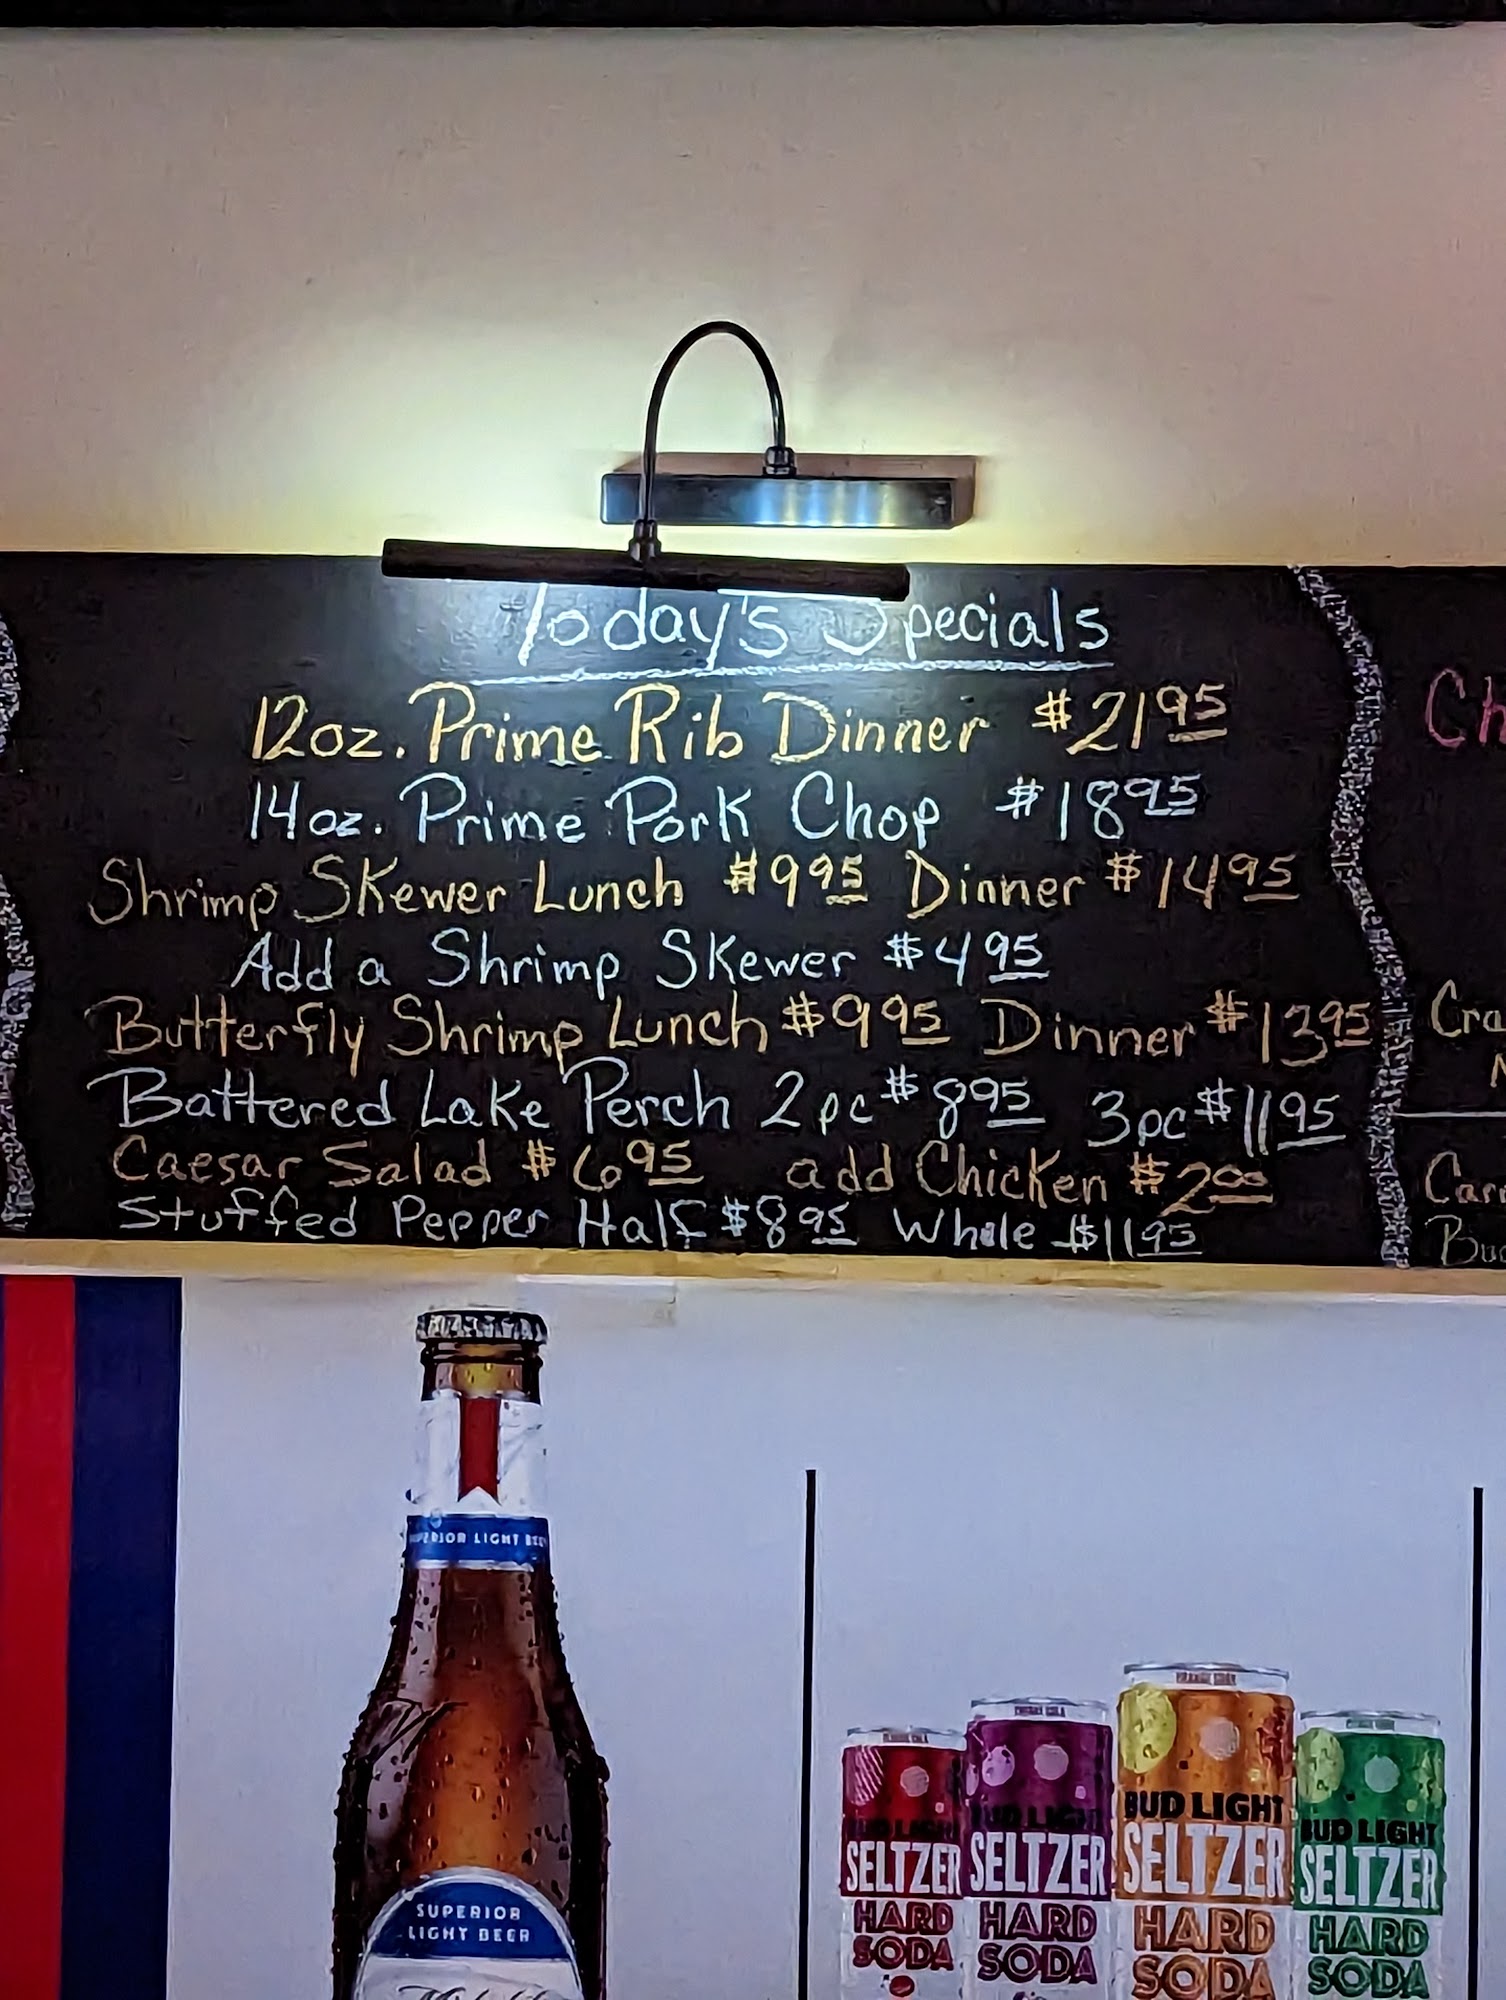 Today's Specials
12oz. Prime Rib Dinner $21.95
14oz. Prime Pork Chop $18.95
Shrimp Skewer Lunch $9.95 Dinner $14.95
Add a Shrimp Skewer $4.95
Butterfly Shrimp Lunch $9.95 Dinner $13.95
Battered Lake Perch 2pc $8.95 3pc $11.95
Caesar Salad $6.95 add Chicken $2.00
Stuffed Pepper Half $8.95 Whole $11.95
SUPERIOR LIGHT BEER
SUPERIOR
LIGHT BEER
BUD LIGHT
SELTZER
HARD
SODA
BUD LIGHT
SELTZER
HARD
SODA
BUD LIGHT
SELTZER
HARD
SODA
BUD LIGHT
SELTZER
HARD
SODA